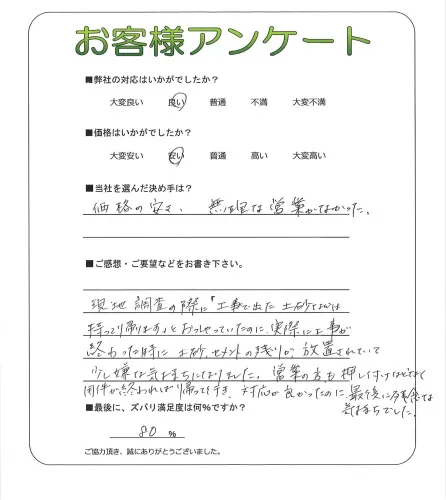 お客様アンケート
■弊社の対応はいかがでしたか？
大変良い 良い 普通 不満 大変不満
■価格はいかがでしたか？
大変安い 安い 普通 高い 大変高い
■当社を選んだ決め手は？
価格の安さ、無理な営業がなかった。
■ご感想・ご要望などをお書き下さい。
現地調査の際に「工事で出た土砂などは
持って帰ります」とおっしゃっていたのに、実際に工事が
終わった時に土砂、セメントの残りが放置されていて
少し嫌な気持ちになりました。営業の方も押し付けはなく
用件が終われば帰って行き、対応が良かったのに、最後に残念な
気持ちでした。
■最後に、ズバリ満足度は何%ですか？
80 %
ご協力頂き、誠にありがとうございました。